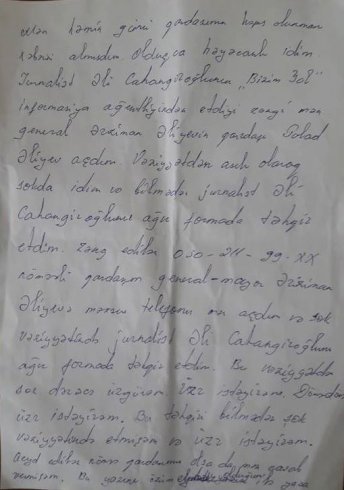 Mən həmin günü qardaşımın həbs olunması
xəbərini almışdım. Olduqca həyəcanlı idim
Jurnalist Əli Cahangiroğlunun "Bizim Yol"
informasiya agentliyindən etdiyi zəngi mən
general Ərziman Əliyevin qardaşı Polad
Əliyev açdım. Vəziyyətdən asılı olaraq
şokda idim və bilmədən jurnalist Əli
Cahangiroğlunu ağır formada təhqir
etdim. Zəng edilən 050-211-99-XX
nömrəli qardaşım general-mayor Ərziman
Əliyevə məxsus telefonu mən açdım və şok
vəziyyətində jurnalist Əli Cahangiroğlunu
ağır formada təhqir etdim. Bu vəziyyətdən
son dərəcə üzgünəm. Üzr istəyirəm. Dönə-dönə
üzr istəyirəm. Bu təhqiri bilmədən şok
vəziyyətində etmişəm və üzr istəyirəm.
Qeyd edilən nömrə qardaşımın olsa da mən cavab
vermişəm. Bu